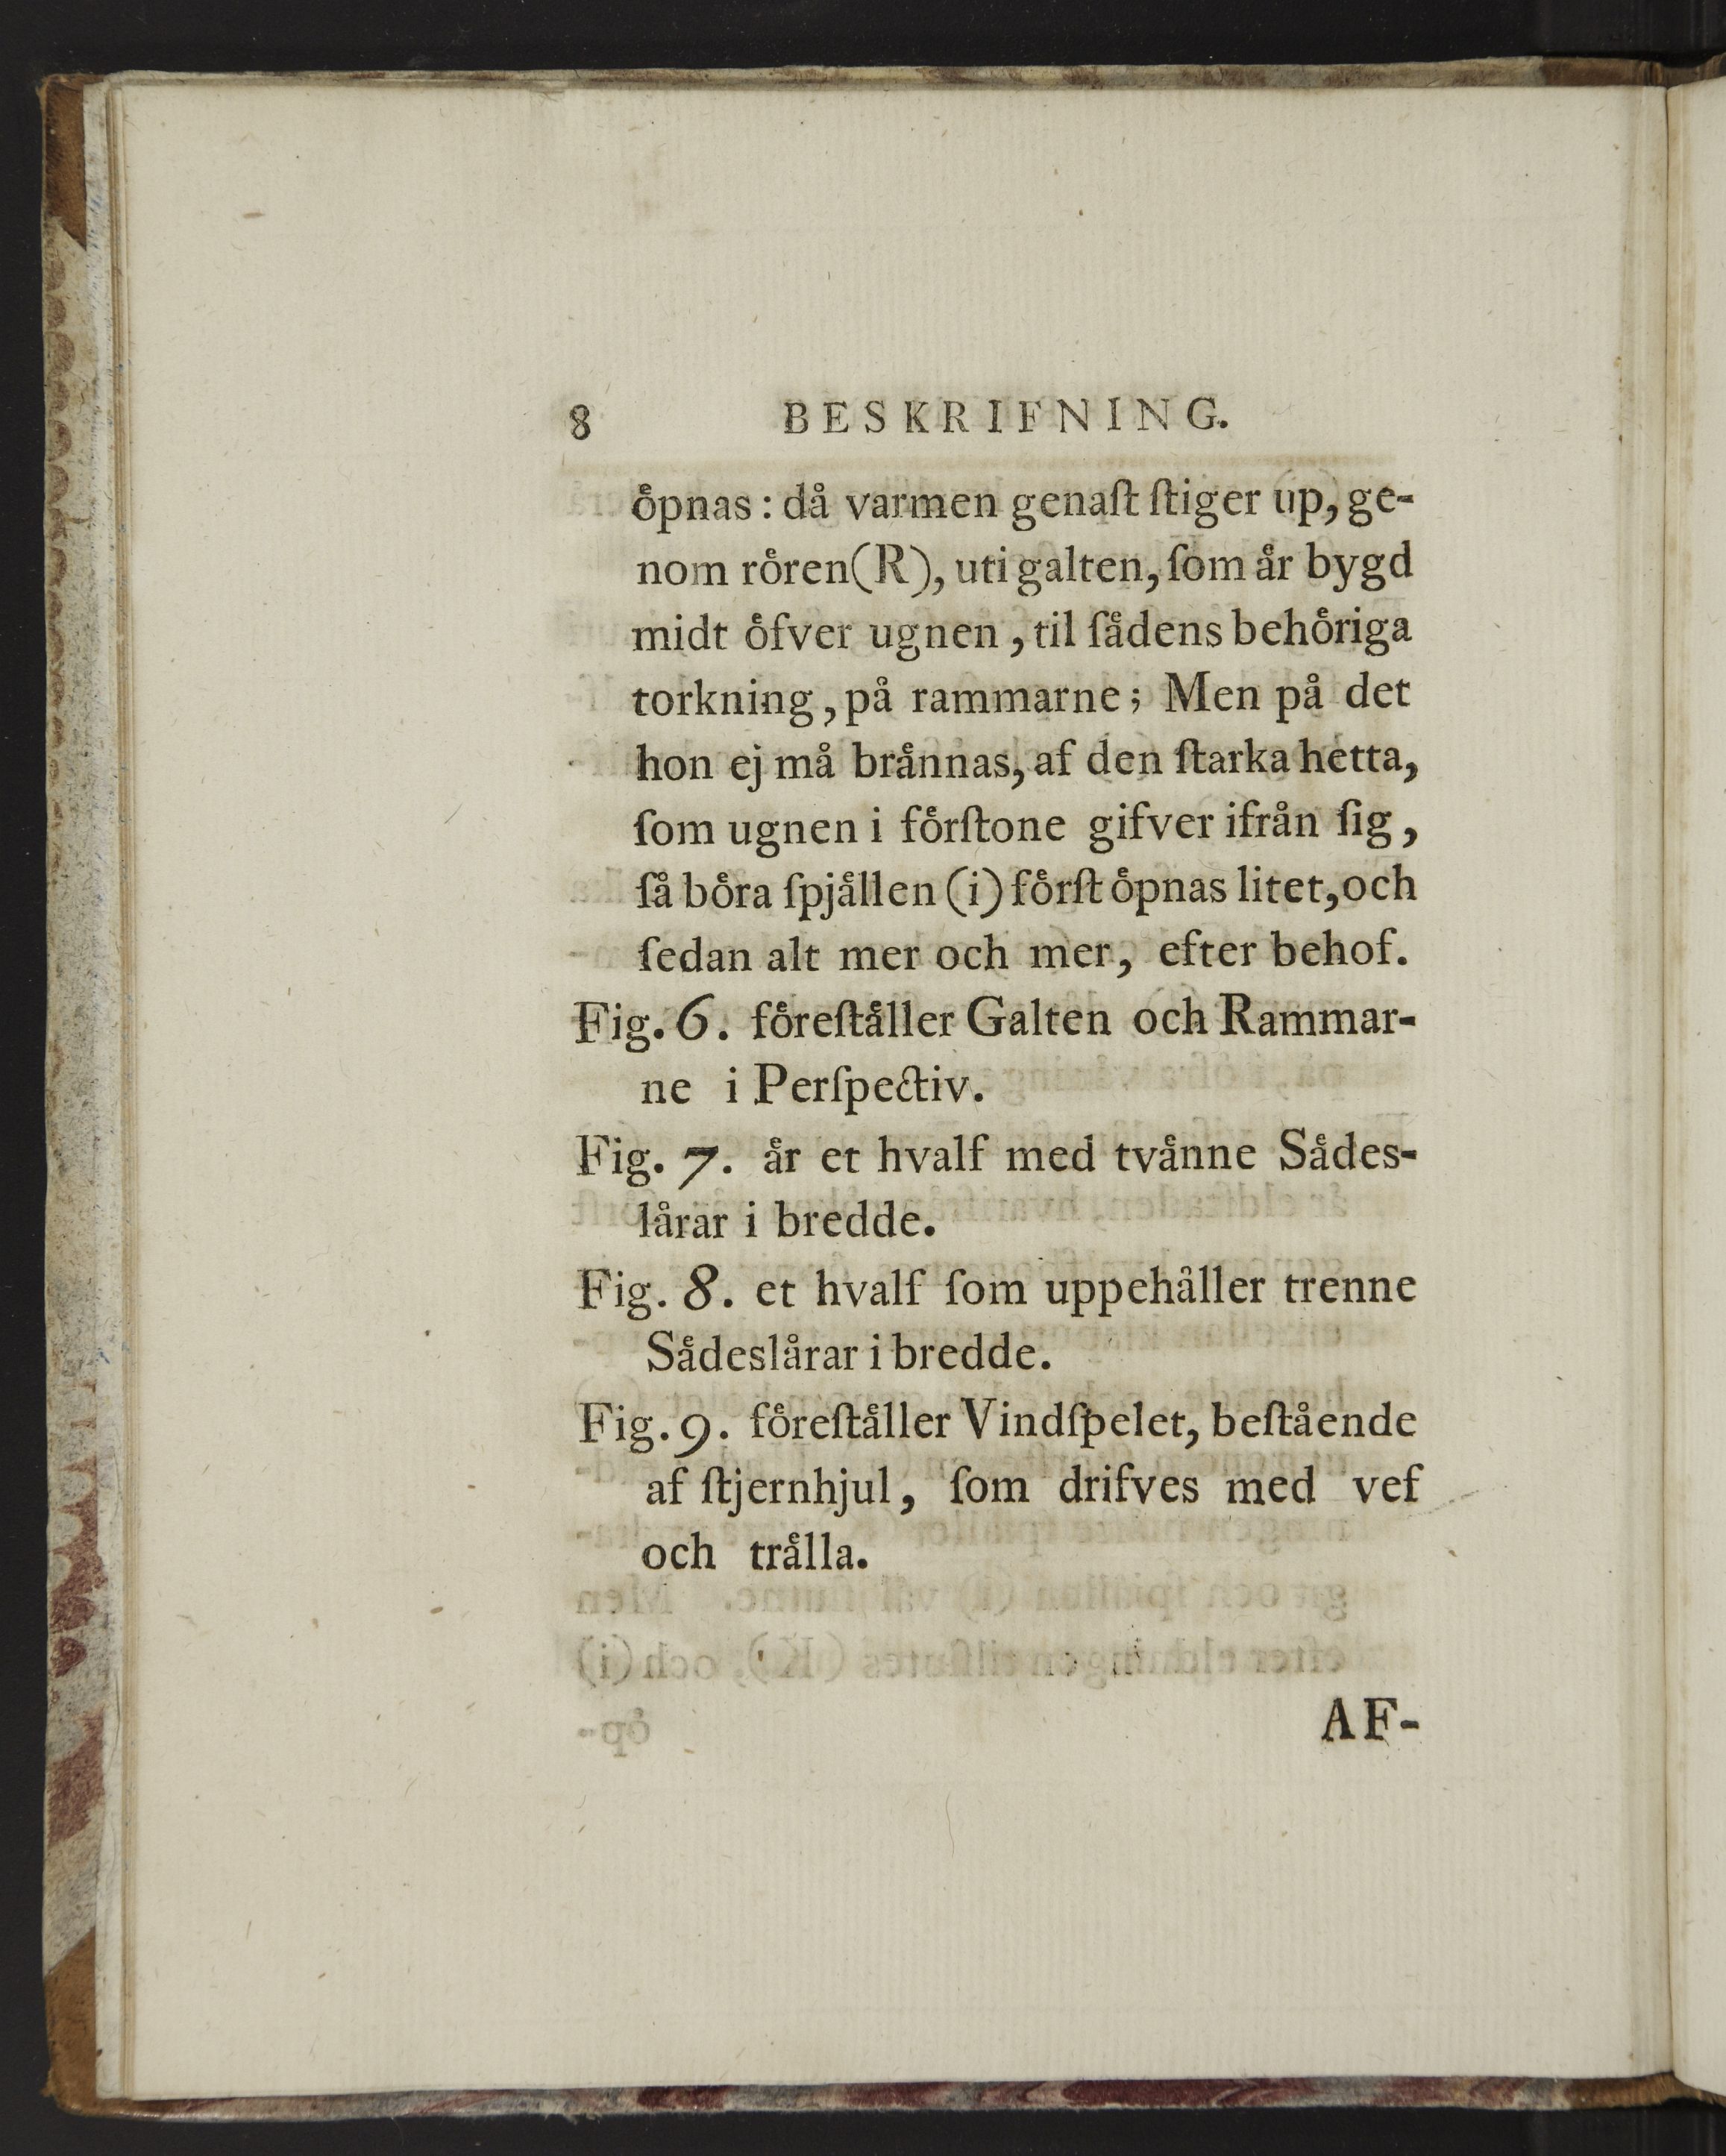 8 BESKRIFNING.
öpnas: då varmen genaſt ſtiger up, ge-
nom rören (R), uti galten, ſom är bygd
midt öfver ugnen, til ſädens behöriga
torkning, på rammarne; Men på det
hon ej må brännas, af den ſtarka hetta,
ſom ugnen i förſtone gifver ifrån ſig,
ſå böra ſpjällen (i) förſt öpnas litet, och
ſedan alt mer och mer, efter behof.
Fig. 6. föreſtäller Galten och Rammar-
ne i Perſpectiv.
Fig. 7. är et hvalf med tvänne Sädes-
lårar i bredde.
Fig. 8. et hvalf ſom uppehåller trenne
Sädeslårar i bredde.
Fig. 9. föreſtäller Vindſpelet, beſtående
af ſtjernhjul, ſom drifves med vef
och trälla.
AF-